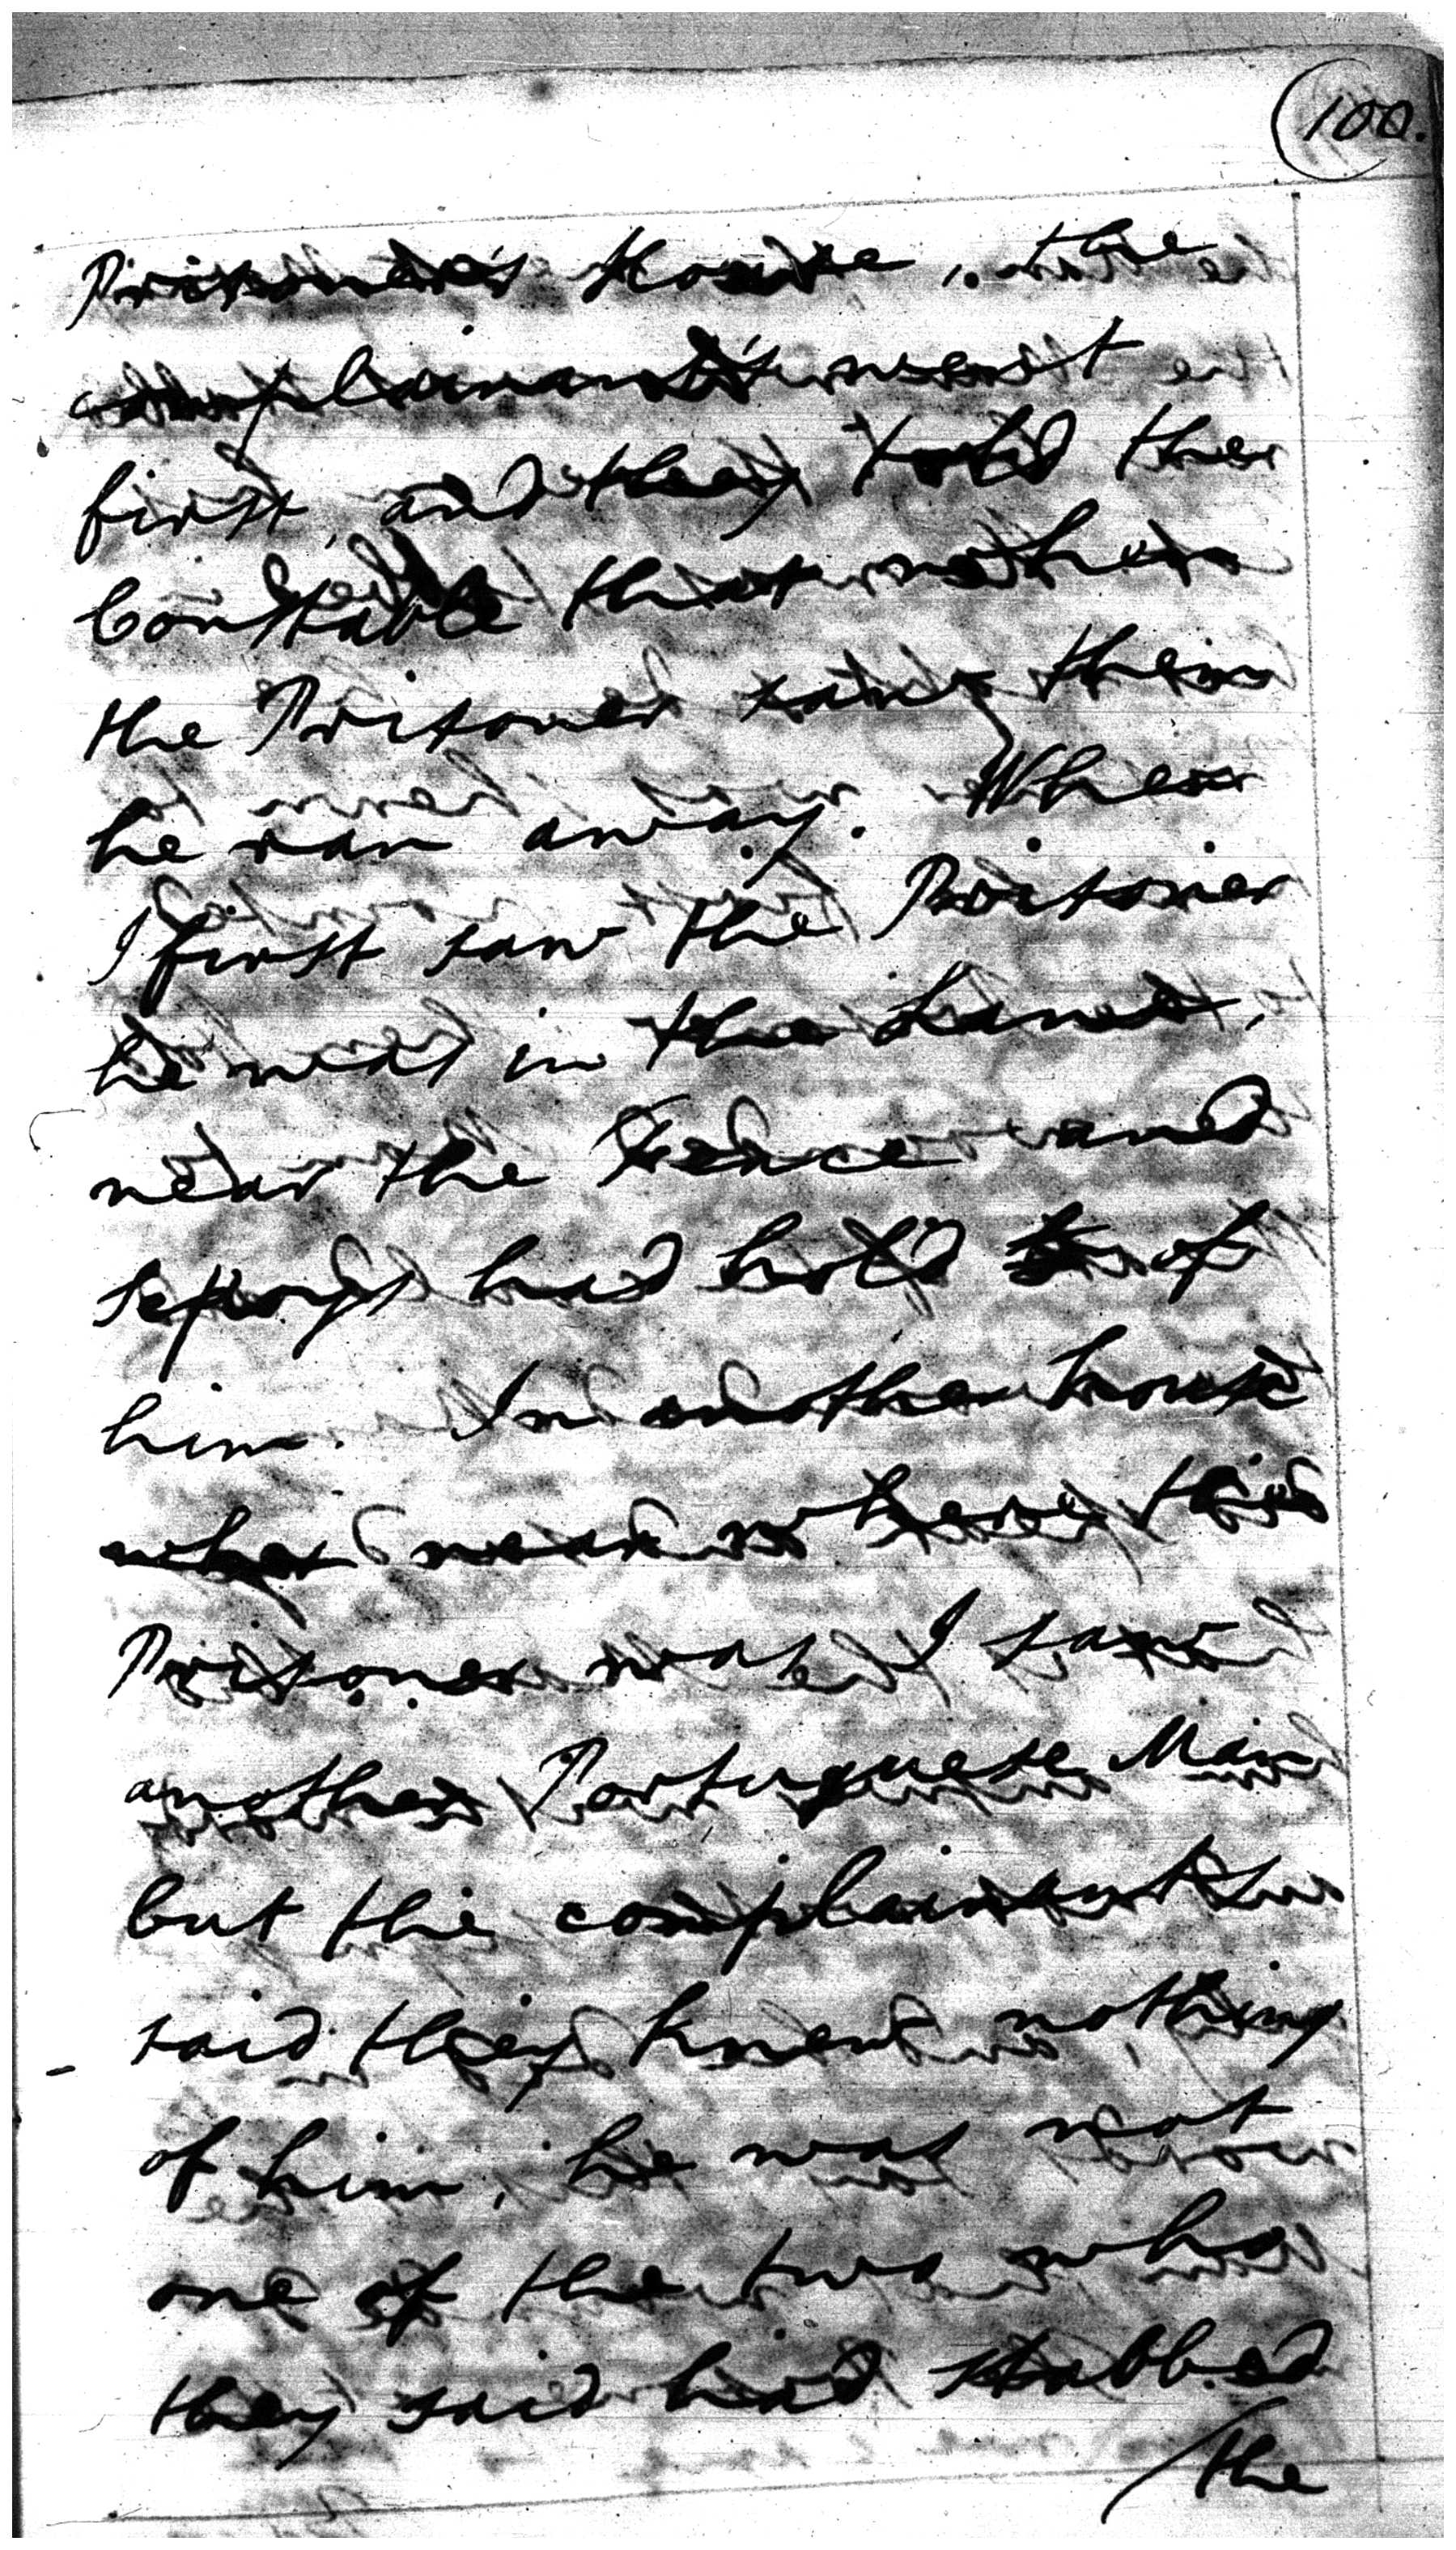 100.
Prisoner's House, the
complainants went
first, and they told the
Constable that when
the Prisoner saw them
he ran away. When
I first saw the Prisoner
he was in the Lane,
near the Fence and
sepoys had hold of
him. In another house
near where this
Prisoner was, I saw
another Portuguese Man
but the complainants
said they knew nothing
of him, he was not
one of the two who
they said had stabbed
/the